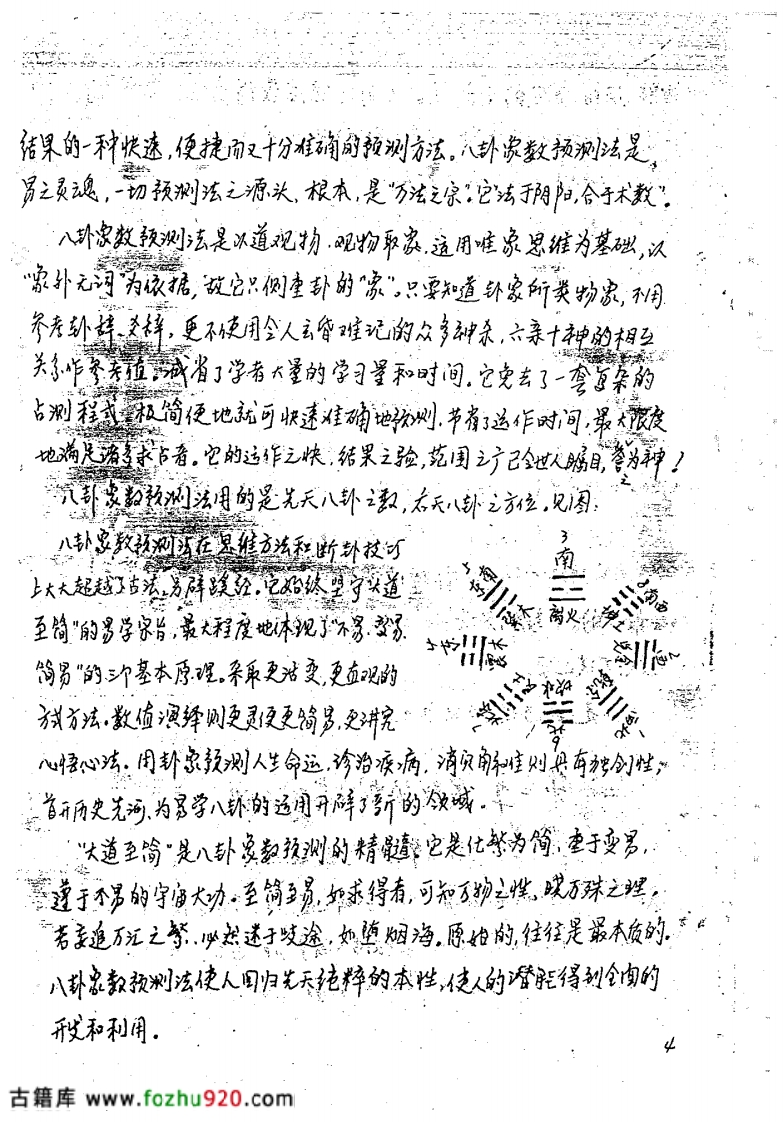 结果的一种快速,便捷而又十分准确的预测方法。八卦象数预测法是
易之灵魂,一切预测法之源头、根本,是“万法之宗”。它“法于阴阳,合于术数”。
八卦象数预测法是以道观物,观物取象,运用唯象思维为基础,以
“象外无词”为依据,故它只侧重卦的“象”。只要知道卦象所类物象,不用
参考卦辞、爻辞,更不使用令人玄昏难记的众多神杀,六亲十神的相互
关系作参考值。减省了学者大量的学习量和时间。它免去了一套复杂的
占测程式,极简便地就可快速准确地预测,节省了运作时间,最大限度
地满足诸多求占者。它的运作之快,结果之验,范围之广已令世人瞩目,誉之为神!
八卦象数预测法用的是先天八卦之数,后天八卦之方位。见图:
八卦象数预测法在思维方法和断卦技巧
上大大超越了古法,另辟蹊径。它始终坚守“大道
至简”的易学家旨,最大程度地体现了“不易、变易、
简易”的三个基本原理。采取更活变,更直观的
方式方法。数值演绎则更灵便更简易,更讲究
心悟心法。用卦象预测人生命运,诊治疾病,消灾角和佳则具有独创性,
首开历史先河,为易学八卦的运用开辟了新的领域。
“大道至简”是八卦象数预测的精髓。它是化繁为简,重于变易,
遵于不易的宇宙大功。至简至易,如求得者,可知万物之性,晓万殊之理。
若妄追万汇之繁,必然迷于歧途,如堕烟海。原始的,往往是最本质的。
八卦象数预测法使人回归先天纯粹的本性,使人的潜能得到全面的
开发和利用。
3
南
离火
东南
巽木
西南
坤土
东
震木
西
兑金
东北
艮土
坎水
北
6
西北
乾金
4
古籍库 www.fozhu920.com